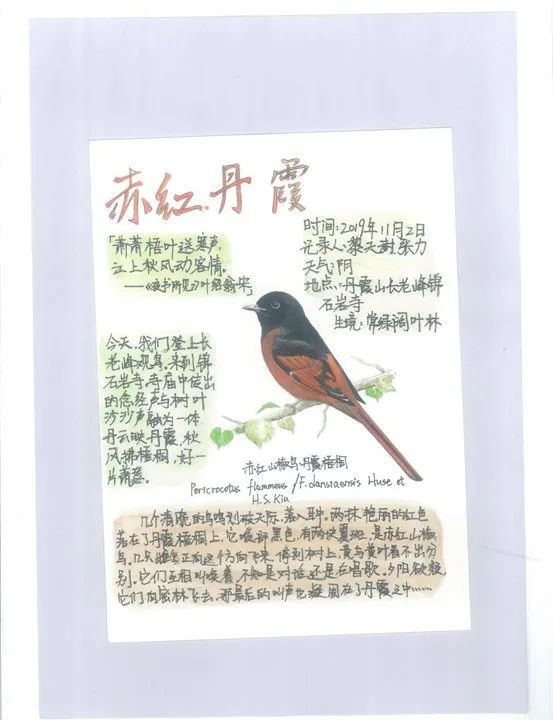 赤红丹霞
「萧萧梧叶送寒声,
江上秋风动客情。
——《夜书所见》叶绍翁宋
时间:2019年11月2日
记录人:黎天封 张力
天气:阴
地点:丹霞山长老峰锦
石岩寺
生境:常绿阔叶林
今天,我们登上长
老峰观鸟,来到锦
石岩寺,寺庙中传出
的念经声与树叶
沙沙声融为一体,
丹云映丹霞,秋
风拂梧桐,好一
片萧意。
赤红山椒鸟、丹霞梧桐
Pericrocotus flammeus / F. danxiaensis Hsue et
H.S. Kiu
几个清脆的鸟鸣划破天际,落入耳中。两抹艳丽的红色
落在了丹霞梧桐上,它喉部黑色,有两块翼斑,是赤红山椒
鸟。几只雌鸟正向这个方向飞来,停到树上,黄与黄叶看不出分
别。它们互相叫唤着,不知是对话还是在唱歌。夕阳欲颓,
它们向密林飞去,那最后的叫声也凝固在了丹霞之中……